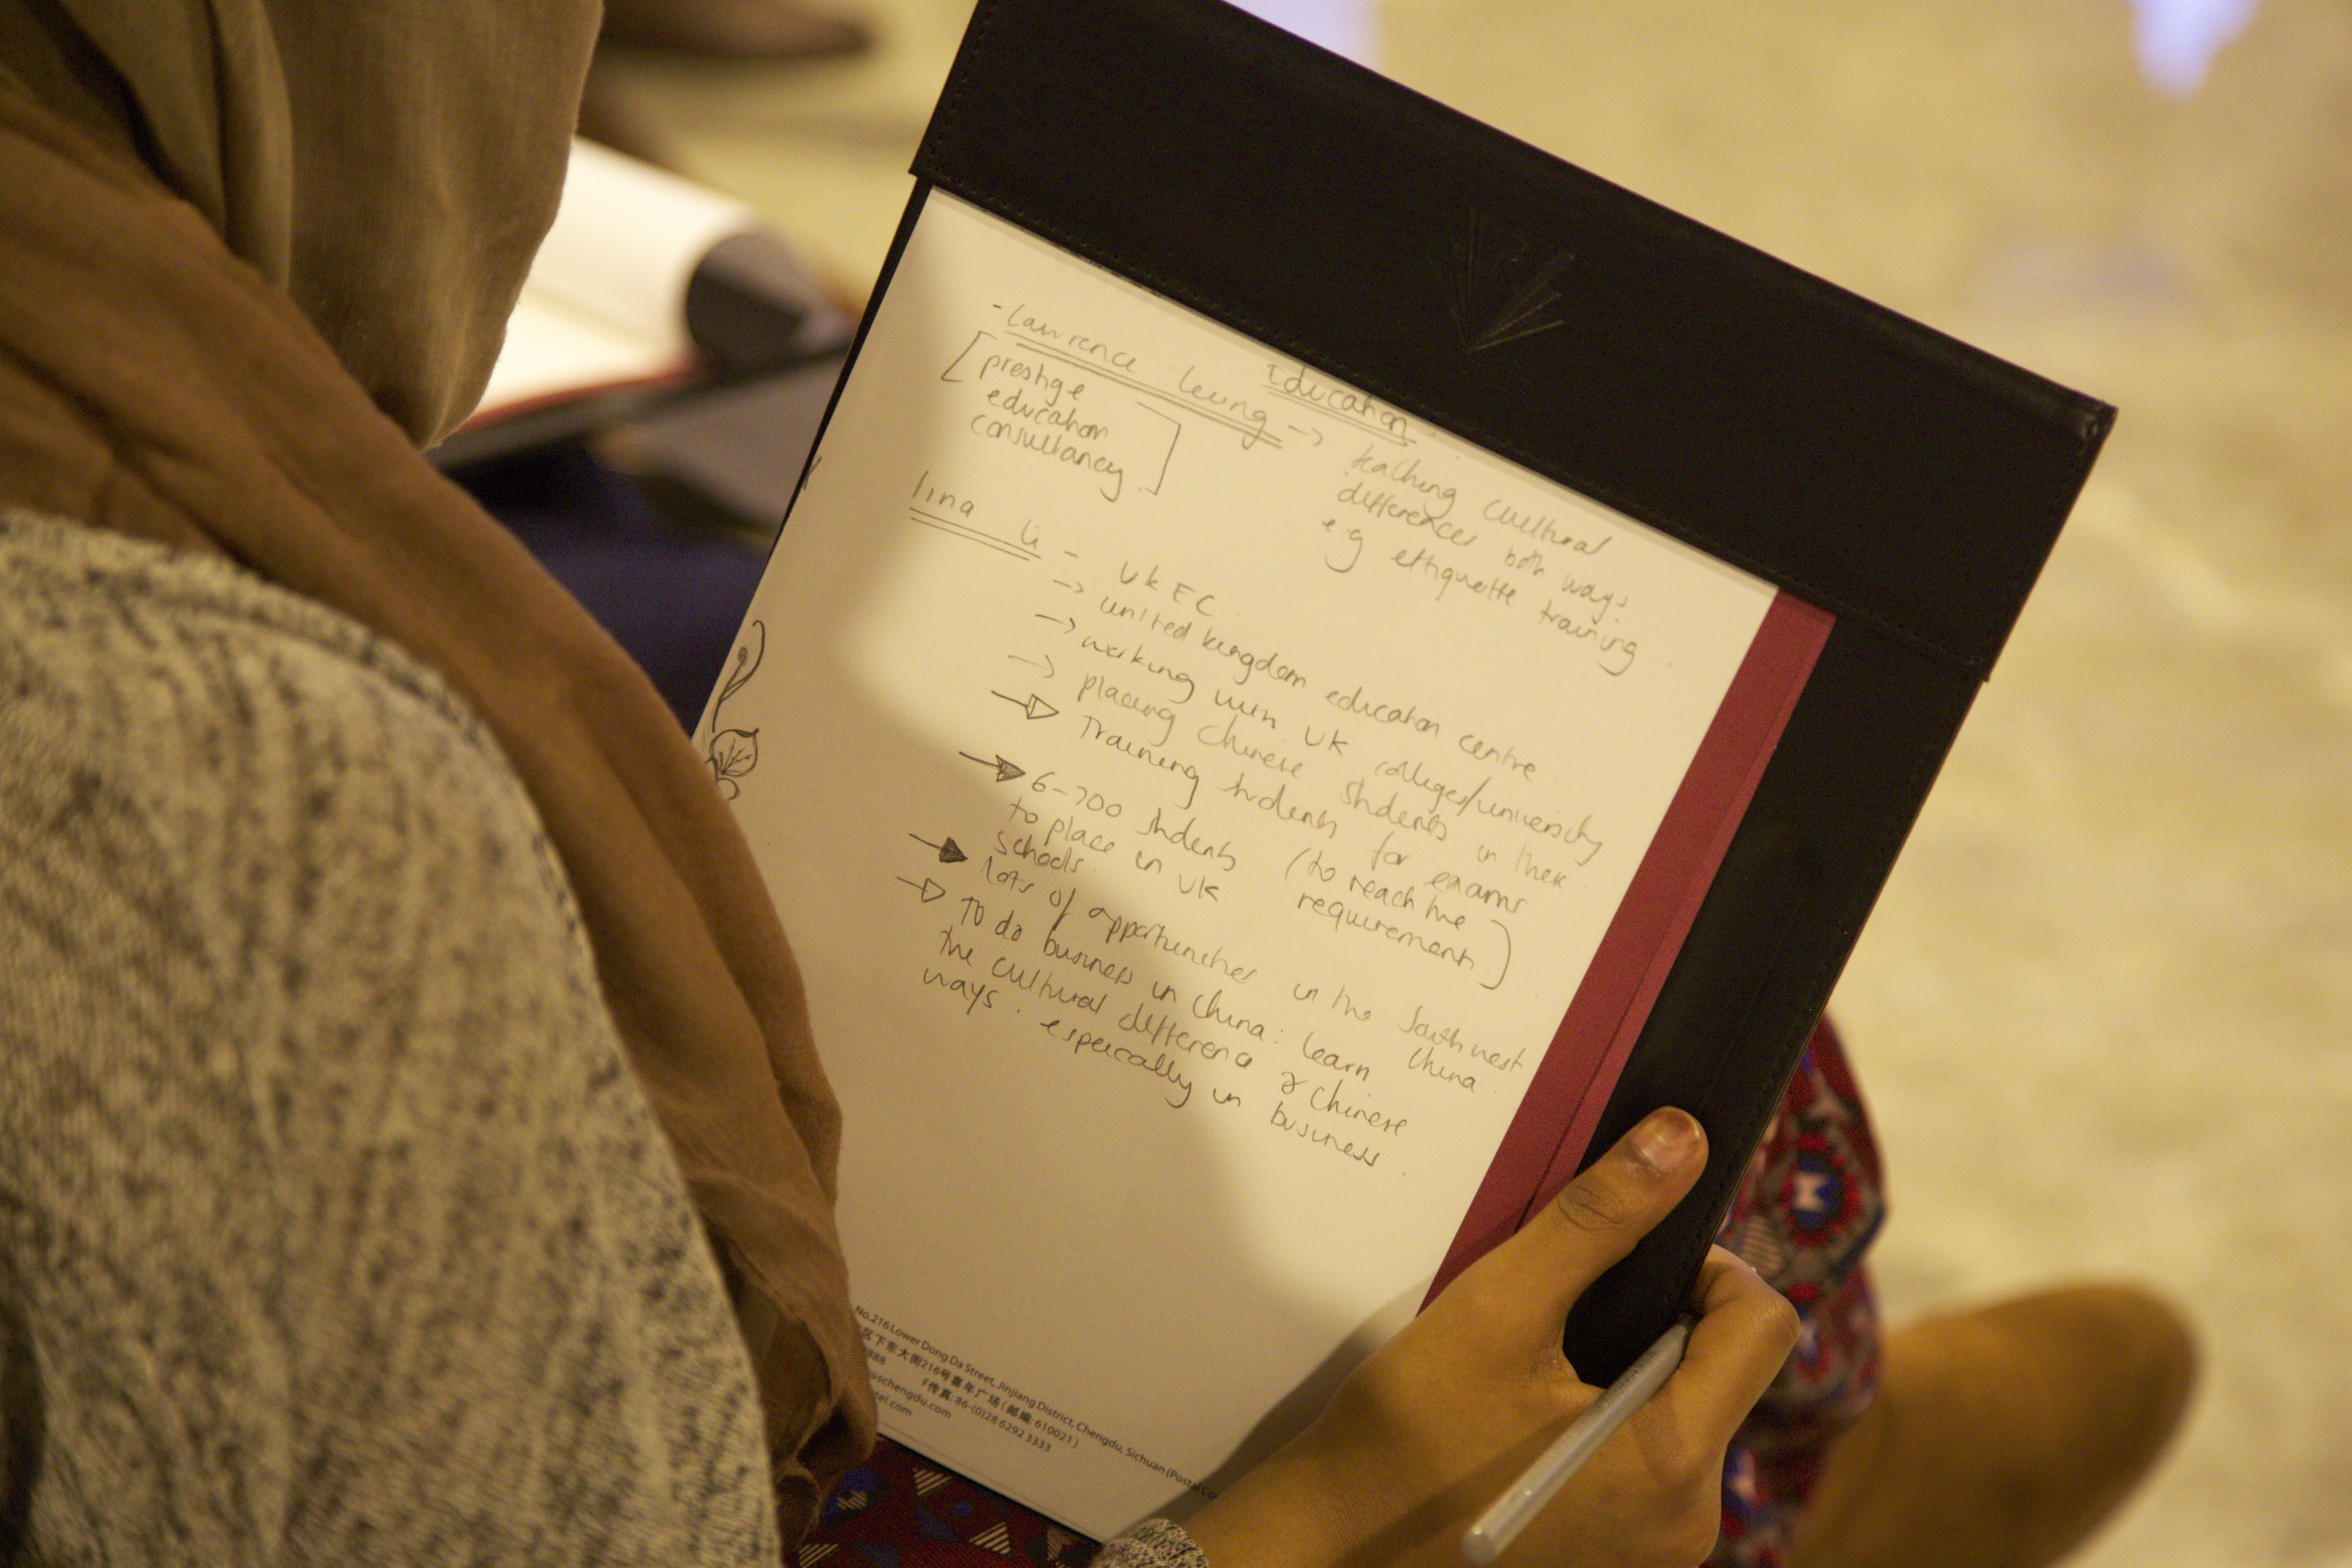 Education
- Lawrence Leung →
[prestige
education
consultancy]
teaching cultural
differences both ways
e.g etiquette training
lina li -
UKEC
→ united kingdom education centre
→ working with UK colleges/university
→ placing Chinese students in there
→ Training students for exams
(to reach the
requirements.)
→ 6-700 students
to place in UK
schools.
→ lots of opportunities in the Southwest
China.
→ To do business in China: learn
the cultural difference & Chinese
ways. especially in business.
No.216 Lower Dong Da Street, Jinjiang District, Chengdu, Sichuan (Postal Co
区下东大街216号喜年广场 (邮编: 610021)
888 F传真: 86-(0)28 6292 3333
uschengdu.com
tel.com